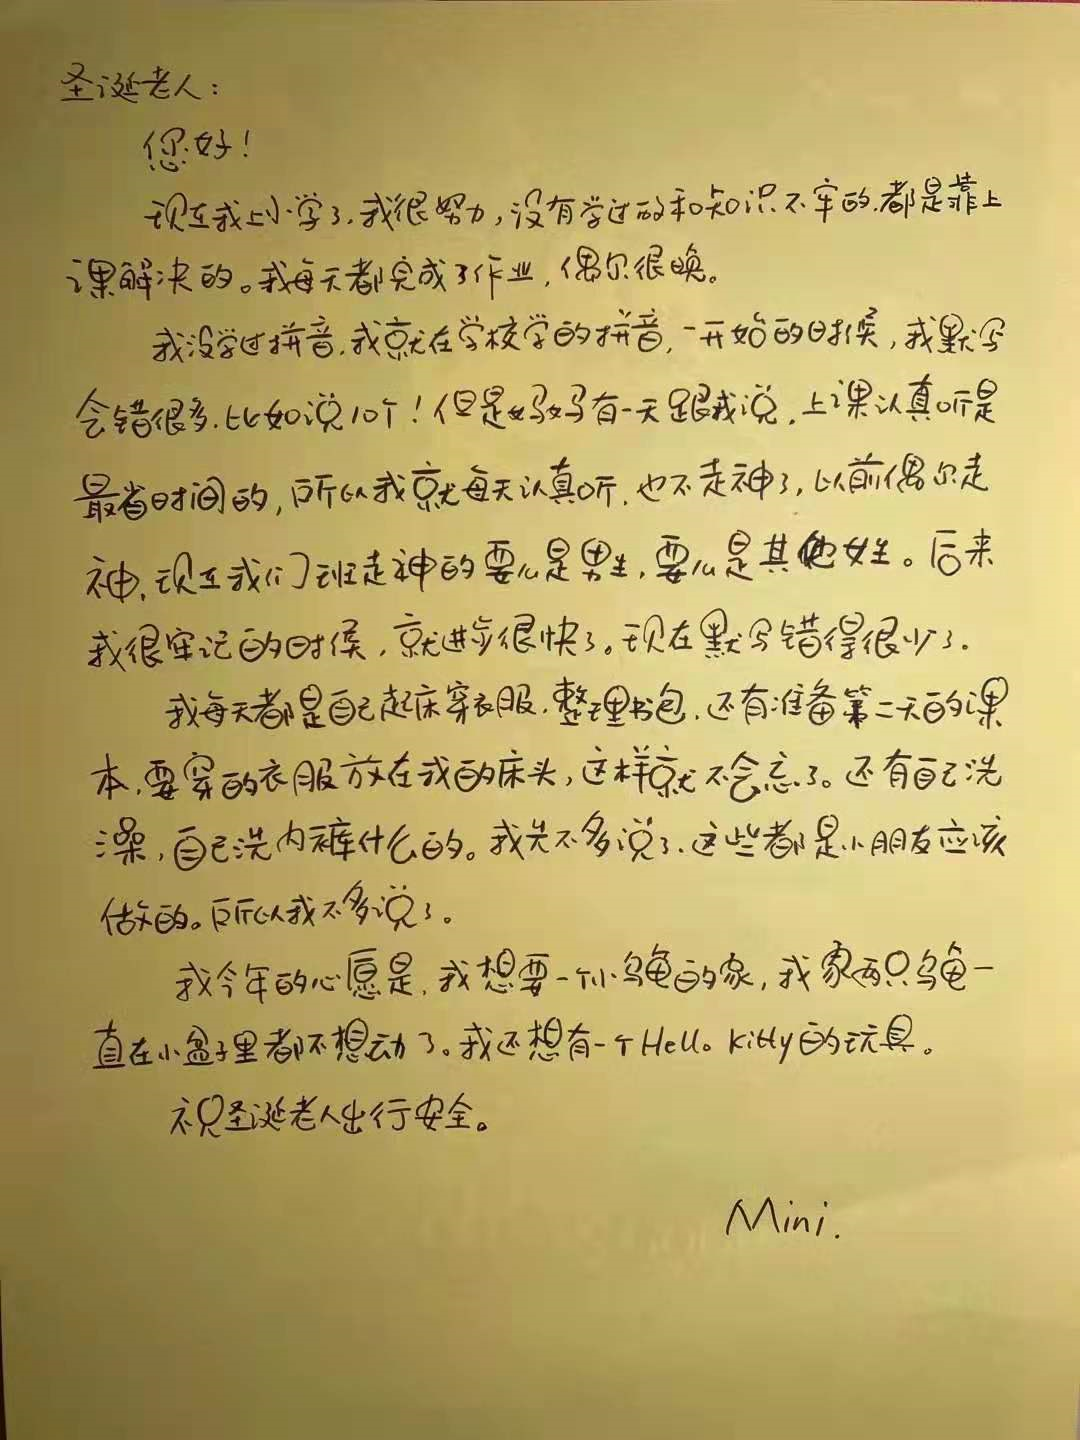 圣诞老人：
您好！
现在我上小学了，我很努力，没有学过的和知识不牢的，都是靠上
课解决的。我每天都完成了作业，偶尔很晚。
我没学过拼音，我就在学校学的拼音，一开始的时候，我默写
会错很多，比如说10个！但是妈妈有一天跟我说，上课认真听是
最省时间的，所以我就每天认真听，也不走神了，以前偶尔走
神，现在我们班走神的要么是男生，要么是其他女生。后来
我很牢记的时候，就进步很快了。现在默写错得很少了．
我每天都是自己起床穿衣服，整理书包，还有准备第二天的课
本，要穿的衣服放在我的床头，这样就不会忘了。还有自己洗
澡，自己洗内裤什么的。我先不多说了，这些都是小朋友应该
做的。所以我不多说了。
我今年的心愿是，我想要一个小乌龟的家，我家两只乌龟一
直在小盒子里都不想动了。我还想有一个Hello Kitty的玩具。
祝圣诞老人出行安全。
Mini.